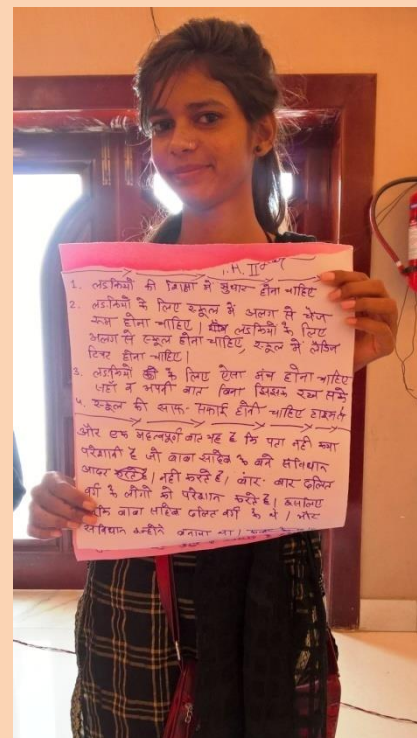 1. लडकियों की शिक्षा में सुधार होना चाहिए
2. लडकियों के लिए स्कूल में अलग से चेंज
रूम होना चाहिए। लडकियों के लिए
अलग से स्कूल होना चाहिए, स्कूल में लेकिन
टिचर होना चाहिए।
3. लडकियों के लिए ऐसा मंच होना चाहिए
जहाँ व अपनी बात बिना झिझक रख सके
4. स्कूल की साफ-सफाई होनी चाहिए
और एक महत्वपूर्ण बात यह है कि पता नहीं क्या
परेशानी है जो बाबा साहेब के बने संविधान
आदर नहीं करते है। बार-बार दलित
वर्ग के लोगों को परेशान करते है। इसलिए
बाबा साहेब दलित वर्ग के थे। और
संविधान उन्होंने बनाया था।